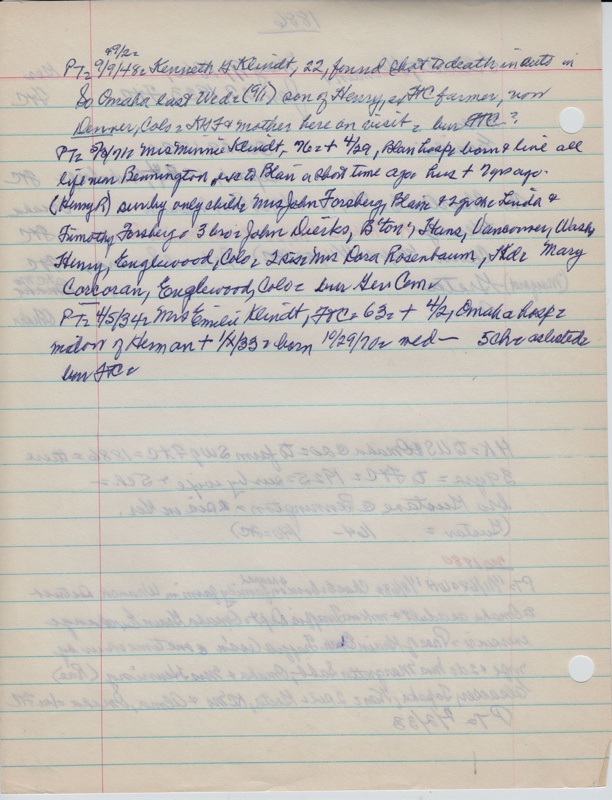 49/2=
PT= 9/9/48= Kenneth H Kleindt, 22, found shot to death in auto in
So Omaha last Wed= (9/1) son of Henry, ex FtC farmer, now
Denver, Colo= KHF & mother here on visit= bur FtC?
PT= 5/3/71= Mrs Minnie Kleindt, 76= + 4/29, Blair hosp= born & live all
life near Bennington, exc to Blair a short time ago= hus + 7 yrs ago=
(Henry R) surv by only child= Mrs John Forsberg, Blair & 2 grch= Linda &
Timothy Forsberg= 3 bro= John Dierks, B'ton, Hans, Vancouver, Wash;
Henry, Englewood, Colo= 2 sis= Mrs Dora Rosenbaum, Mary
Corcoran, Englewood, Colo= bur Ger Cem=
PT= 4/5/34= Mrs Emilie Kleindt, FtC= 63= + 4/2, Omaha hosp=
widow of Herman + 1/2/33= born 10/29/70= med— 5 ch= as listed=
bur FtC=